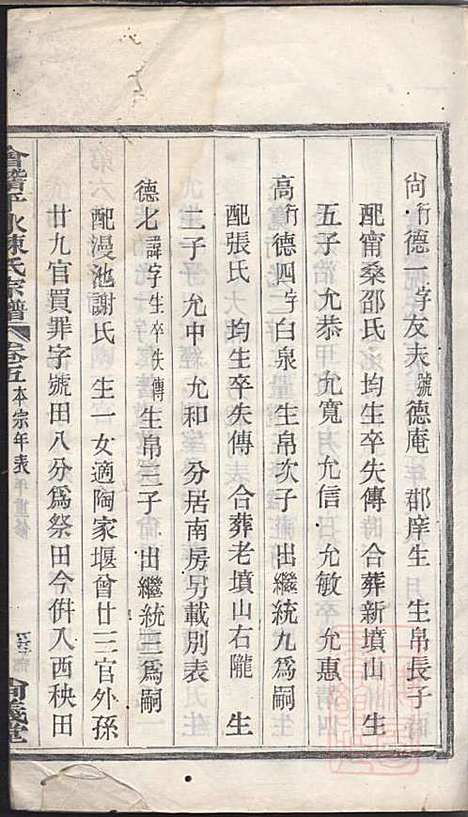 尙行德一字友夫號德庵 郡庠生 生帛長子
配甯桑邵氏 均生卒失傳 合葬新墳山 生
五子 允恭 允寬 允信 允敏 允惠
高行德四字白泉 生帛次子 出繼統九爲嗣
配張氏 均生卒失傳 合葬老墳山右隴 生
二子 允中 允和 分居南房另載別表
德七諱字生卒失傳 生帛三子 出繼統三爲嗣
配漫池謝氏 生一女適陶家堰曾廿三官外孫
廿九官買罪字號田八分爲祭田今倂入西秧田
會稽平水陳氏宗譜 卷五 本宗年表